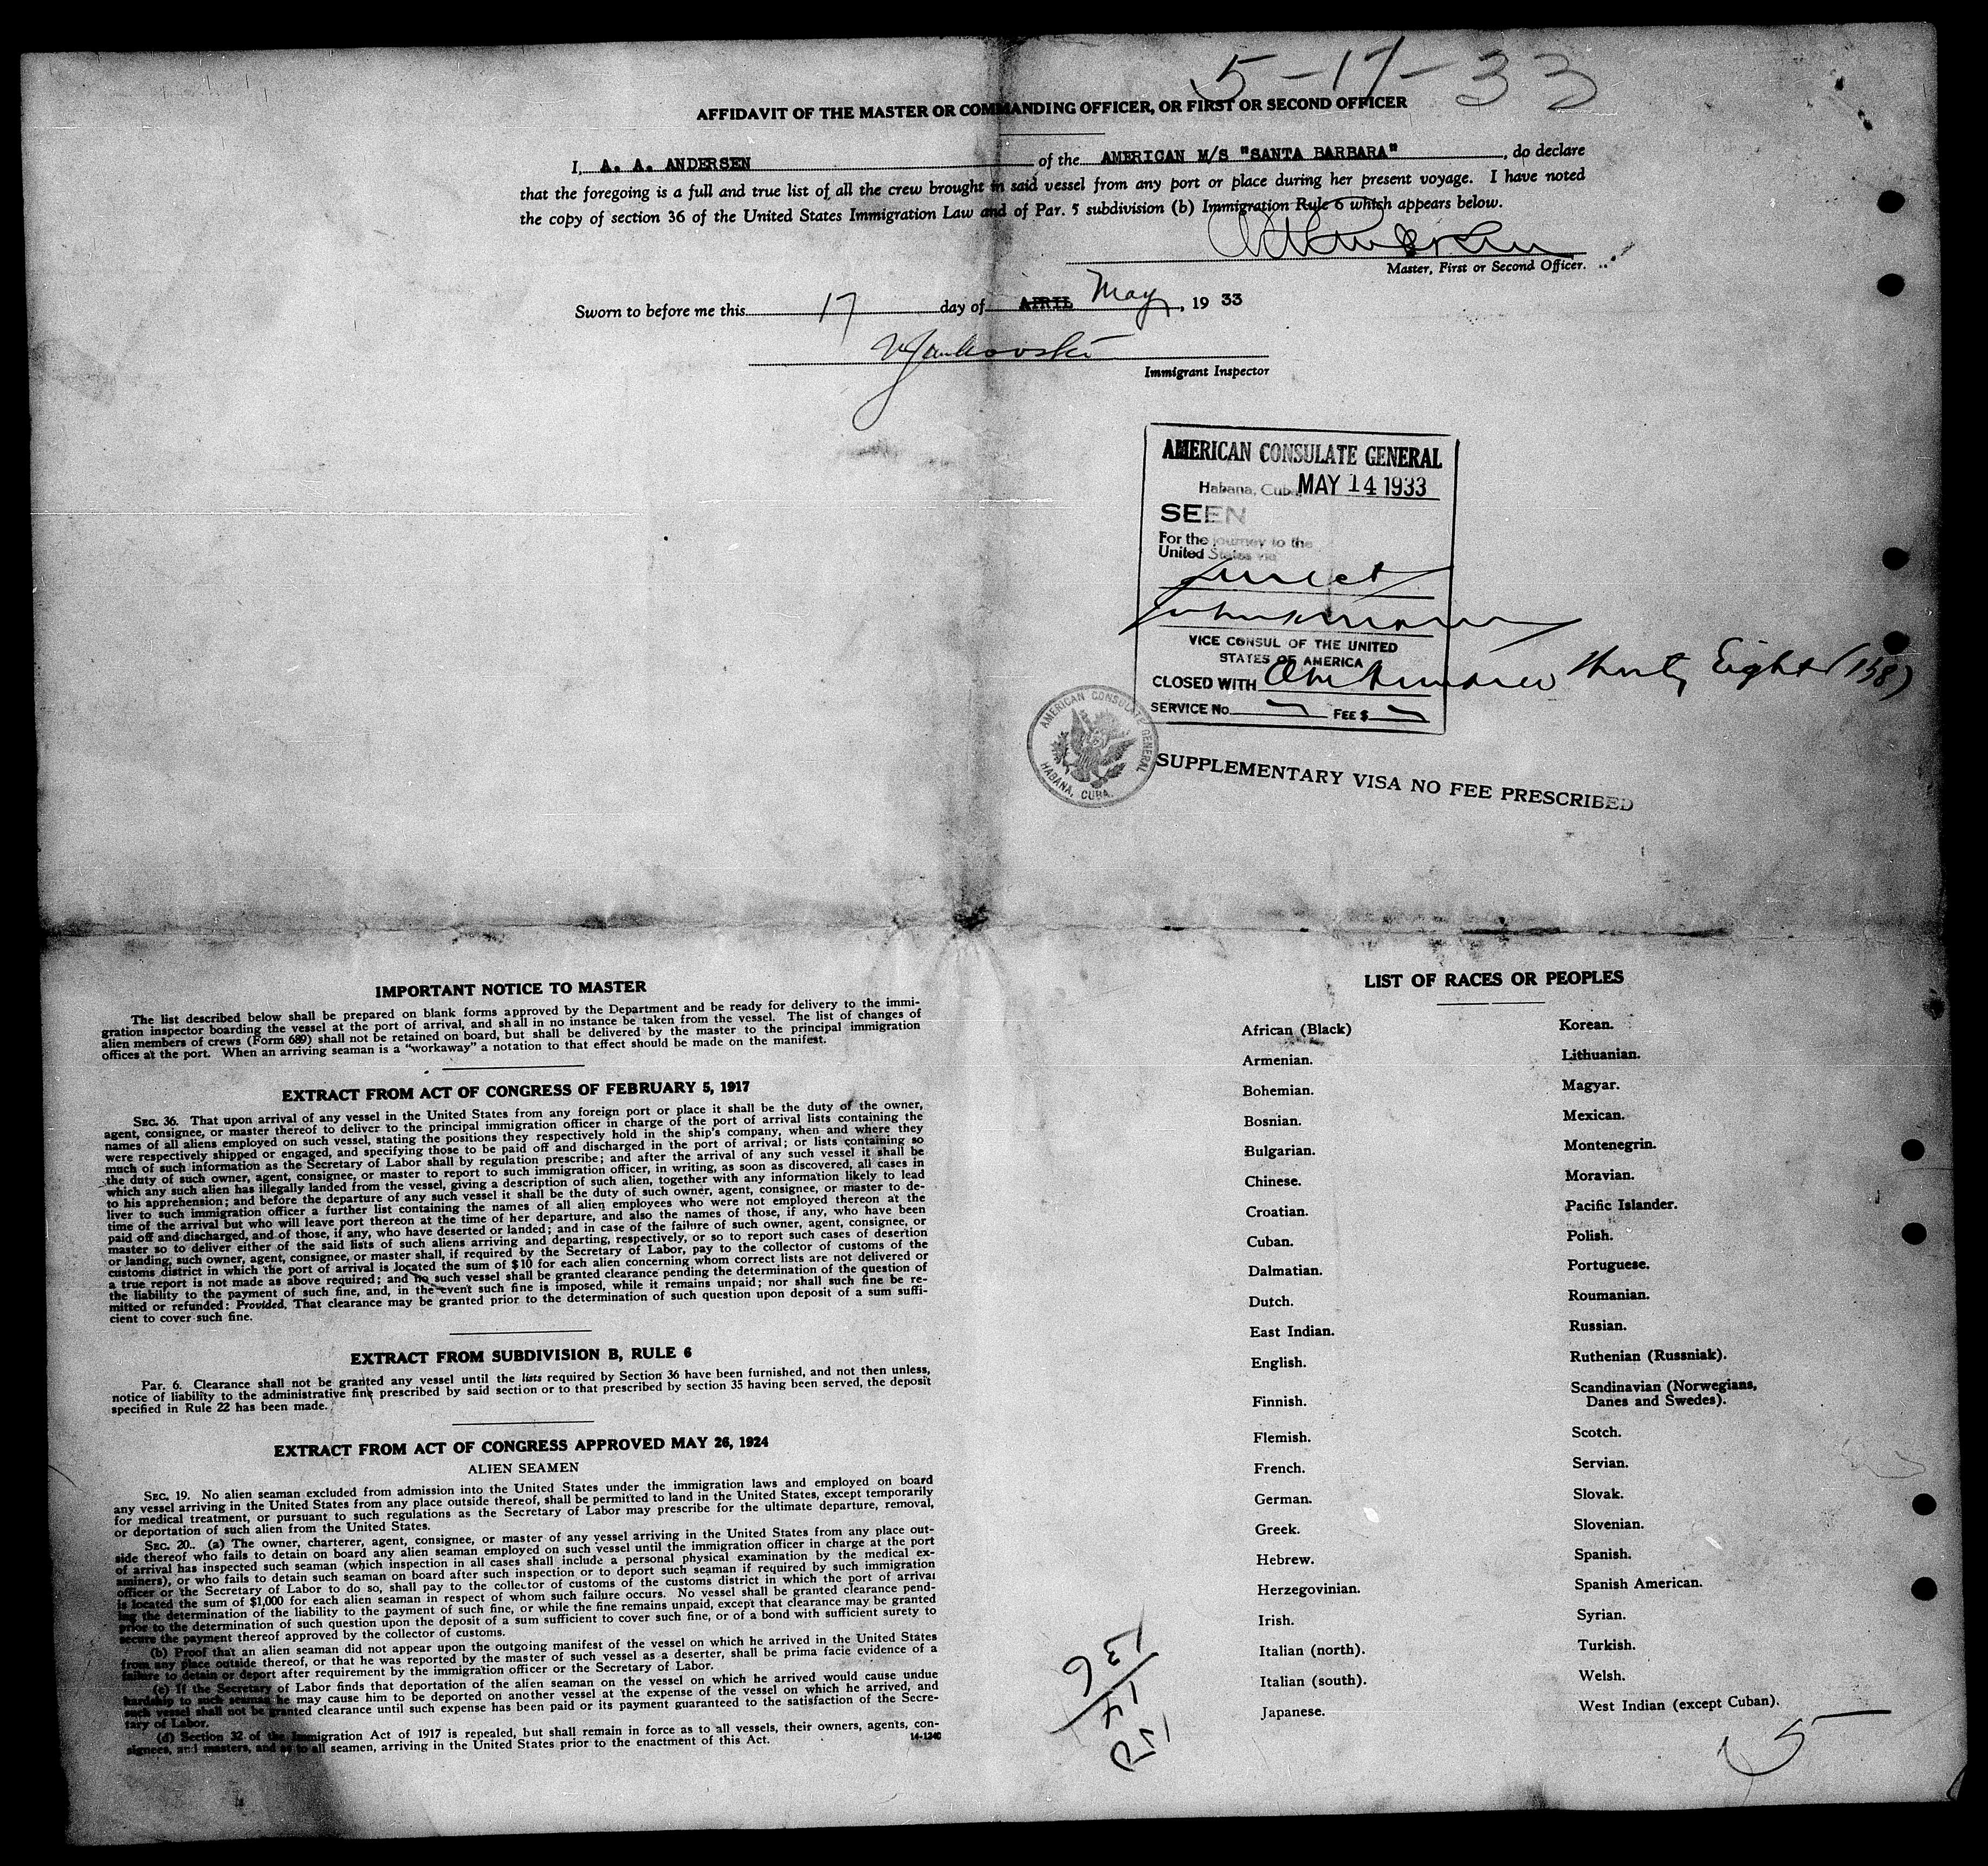 5-17-33
AFFIDAVIT OF THE MASTER OR COMMANDING OFFICER, OR FIRST OR SECOND OFFICER
I, A. A. ANDERSEN of the AMERICAN M/S "SANTA BARBARA", do declare
that the foregoing is a full and true list of all the crew brought in said vessel from any port or place during her present voyage. I have noted
the copy of section 36 of the United States Immigration Law and of Par. 5 subdivision (b) Immigration Rule 6 which appears below.
Master, First or Second Officer.
Sworn to before me this 17 day of APRIL May, 19 33
Immigrant Inspector
AMERICAN CONSULATE GENERAL
Habana, Cuba MAY 14 1933
SEEN
For the journey to the
United States via
VICE CONSUL OF THE UNITED
STATES OF AMERICA
CLOSED WITH One Hundred Thirty Eight (138)
SERVICE No. FEE $
AMERICAN CONSULATE GENERAL
HABANA, CUBA.
SUPPLEMENTARY VISA NO FEE PRESCRIBED
IMPORTANT NOTICE TO MASTER
The list described below shall be prepared on blank forms approved by the Department and be ready for delivery to the immi-
gration inspector boarding the vessel at the port of arrival, and shall in no instance be taken from the vessel. The list of changes of
alien members of crews (Form 689) shall not be retained on board, but shall be delivered by the master to the principal immigration
offices at the port. When an arriving seaman is a "workaway" a notation to that effect should be made on the manifest.
EXTRACT FROM ACT OF CONGRESS OF FEBRUARY 5, 1917
SEC. 36. That upon arrival of any vessel in the United States from any foreign port or place it shall be the duty of the owner,
agent, consignee, or master thereof to deliver to the principal immigration officer in charge of the port of arrival lists containing the
names of all aliens employed on such vessel, stating the positions they respectively hold in the ship's company, when and where they
were respectively shipped or engaged, and specifying those to be paid off and discharged in the port of arrival; or lists containing so
much of such information as the Secretary of Labor shall by regulation prescribe; and after the arrival of any such vessel it shall be
the duty of such owner, agent, consignee, or master to report to such immigration officer, in writing, as soon as discovered, all cases in
which any such alien has illegally landed from the vessel, giving a description of such alien, together with any information likely to lead
to his apprehension; and before the departure of any such vessel it shall be the duty of such owner, agent, consignee, or master to de-
liver to such immigration officer a further list containing the names of all alien employees who were not employed thereon at the
time of the arrival but who will leave port thereon at the time of her departure, and also the names of those, if any, who have been
paid off and discharged, and of those, if any, who have deserted or landed; and in case of the failure of such owner, agent, consignee, or
master so to deliver either of the said lists of such aliens arriving and departing, respectively, or so to report such cases of desertion
or landing, such owner, agent, consignee, or master shall, if required by the Secretary of Labor, pay to the collector of customs of the
customs district in which the port of arrival is located the sum of $10 for each alien concerning whom correct lists are not delivered or
a true report is not made as above required; and no such vessel shall be granted clearance pending the determination of the question of
the liability to the payment of such fine, and, in the event such fine is imposed, while it remains unpaid; nor shall such fine be re-
mitted or refunded: Provided, That clearance may be granted prior to the determination of such question upon deposit of a sum suffi-
cient to cover such fine.
EXTRACT FROM SUBDIVISION B, RULE 6
Par. 6. Clearance shall not be granted any vessel until the lists required by Section 36 have been furnished, and not then unless,
notice of liability to the administrative fine prescribed by said section or to that prescribed by section 35 having been served, the deposit
specified in Rule 22 has been made.
EXTRACT FROM ACT OF CONGRESS APPROVED MAY 26, 1924
ALIEN SEAMEN
SEC. 19. No alien seaman excluded from admission into the United States under the immigration laws and employed on board
any vessel arriving in the United States from any place outside thereof, shall be permitted to land in the United States, except temporarily
for medical treatment, or pursuant to such regulations as the Secretary of Labor may prescribe for the ultimate departure, removal,
or deportation of such alien from the United States.
SEC. 20. (a) The owner, charterer, agent, consignee, or master of any vessel arriving in the United States from any place out-
side thereof who fails to detain on board any alien seaman employed on such vessel until the immigration officer in charge at the port
of arrival has inspected such seaman (which inspection in all cases shall include a personal physical examination by the medical ex-
aminers), or who fails to detain such seaman on board after such inspection or to deport such seaman if required by such immigration
officer or the Secretary of Labor to do so, shall pay to the collector of customs of the customs district in which the port of arrival
is located the sum of $1,000 for each alien seaman in respect of whom such failure occurs. No vessel shall be granted clearance pend-
ing the determination of the liability to the payment of such fine, or while the fine remains unpaid, except that clearance may be granted
prior to the determination of such question upon the deposit of a sum sufficient to cover such fine, or of a bond with sufficient surety to
secure the payment thereof approved by the collector of customs.
(b) Proof that an alien seaman did not appear upon the outgoing manifest of the vessel on which he arrived in the United States
from any place outside thereof, or that he was reported by the master of such vessel as a deserter, shall be prima facie evidence of a
failure to detain or deport after requirement by the immigration officer or the Secretary of Labor.
(c) If the Secretary of Labor finds that deportation of the alien seaman on the vessel on which he arrived would cause undue
hardship to such seaman he may cause him to be deported on another vessel at the expense of the vessel on which he arrived, and
such vessel shall not be granted clearance until such expense has been paid or its payment guaranteed to the satisfaction of the Secre-
tary of Labor.
(d) Section 32 of the Immigration Act of 1917 is repealed, but shall remain in force as to all vessels, their owners, agents, con-
signees, and masters, and as to all seamen, arriving in the United States prior to the enactment of this Act.
14-1240
LIST OF RACES OR PEOPLES
African (Black)
Armenian.
Bohemian.
Bosnian.
Bulgarian.
Chinese.
Croatian.
Cuban.
Dalmatian.
Dutch.
East Indian.
English.
Finnish.
Flemish.
French.
German.
Greek.
Hebrew.
Herzegovinian.
Irish.
Italian (north).
Italian (south).
Japanese.
Korean.
Lithuanian.
Magyar.
Mexican.
Montenegrin.
Moravian.
Pacific Islander.
Polish.
Portuguese.
Roumanian.
Russian.
Ruthenian (Russniak).
Scandinavian (Norwegians,
Danes and Swedes).
Scotch.
Servian.
Slovak.
Slovenian.
Spanish.
Spanish American.
Syrian.
Turkish.
Welsh.
West Indian (except Cuban).
5